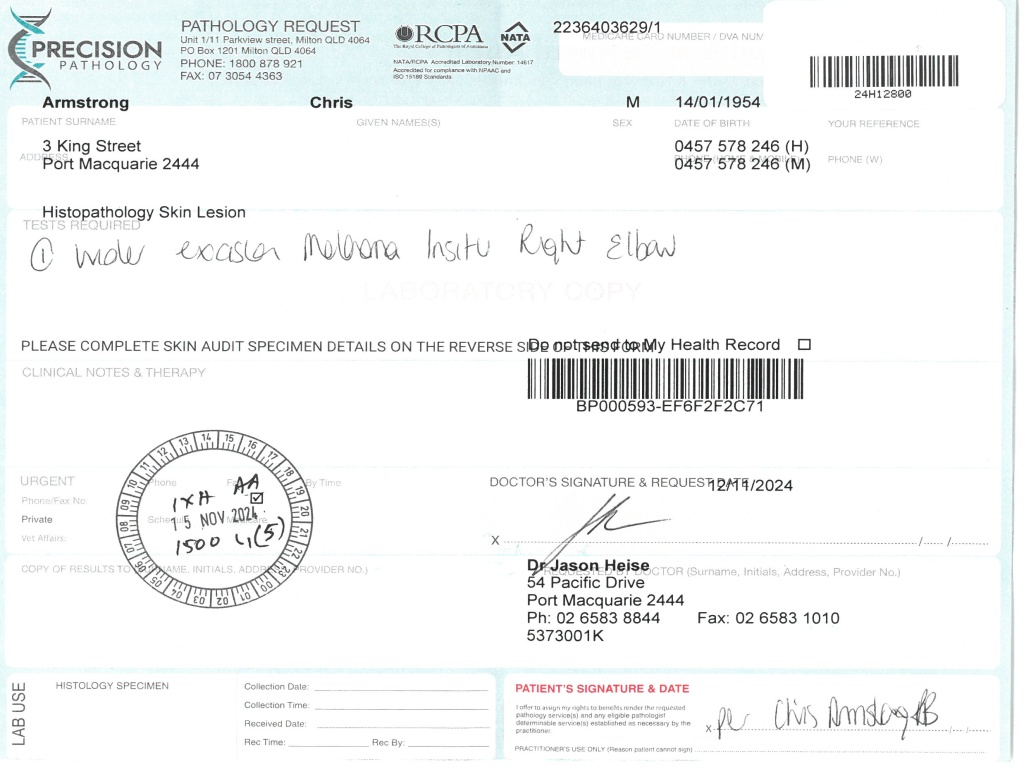 PRECISION
PATHOLOGY
PATHOLOGY REQUEST
Unit 1/11 Parkview street, Milton QLD 4064
PO Box 1201 Milton QLD 4064
PHONE: 1800 878 921
FAX: 07 3054 4363
RCPA
The Royal College of Pathologists of Australasia
NATA
NATA/RCPA Accredited Laboratory Number: 14617
Accredited for compliance with NPAAC and
ISO 15189 Standards
2236403629/1
MEDICARE CARD NUMBER / DVA NUM
24H12800
Armstrong Chris M 14/01/1954
PATIENT SURNAME GIVEN NAMES(S) SEX DATE OF BIRTH YOUR REFERENCE
3 King Street 0457 578 246 (H)
ADDRESS PHONE (W)
Port Macquarie 2444 0457 578 246 (M)
Histopathology Skin Lesion
TESTS REQUIRED
① wider excision Melanoma Insitu Right Elbow
LABORATORY COPY
PLEASE COMPLETE SKIN AUDIT SPECIMEN DETAILS ON THE REVERSE SIDE OF THIS FORM
Do not send to My Health Record ☐
CLINICAL NOTES & THERAPY
BP000593-EF6F2F2C71
URGENT Phone By Time
Phone/Fax No:
Private
Vet Affairs:
00 01 02 03 04 05 06 07 08 09 10 11 12 13 14 15 16 17 18 19 20 21 22 23
1XH AA
☑
15 NOV 2024
1500 (5)
DOCTOR'S SIGNATURE & REQUEST DATE
12/11/2024
X / /
COPY OF RESULTS TO (SURNAME, INITIALS, ADDRESS, PROVIDER NO.)
REQUESTED BY DOCTOR (Surname, Initials, Address, Provider No.)
Dr Jason Heise
54 Pacific Drive
Port Macquarie 2444
Ph: 02 6583 8844 Fax: 02 6583 1010
5373001K
LAB USE
HISTOLOGY SPECIMEN
Collection Date:
Collection Time:
Received Date:
Rec Time: Rec By:
PATIENT'S SIGNATURE & DATE
I offer to assign my rights to benefits render the requested
pathology service(s) and any eligible pathologist
determinable service(s) established as necessary by the
practitioner.
x per Chris Armstrong / /
PRACTITIONER'S USE ONLY (Reason patient cannot sign)